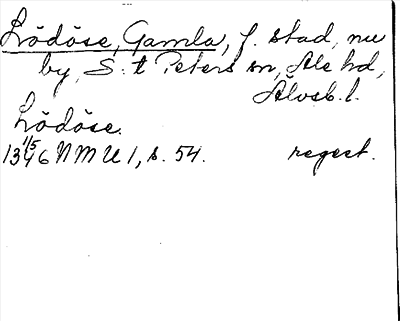 Lödöse, Gamla, f. stad, nu
by, S:t Peters sn, Ale hd,
Älvsb. l.
Lödöse.
1346 1/5 NMU 1, s. 54. regest.